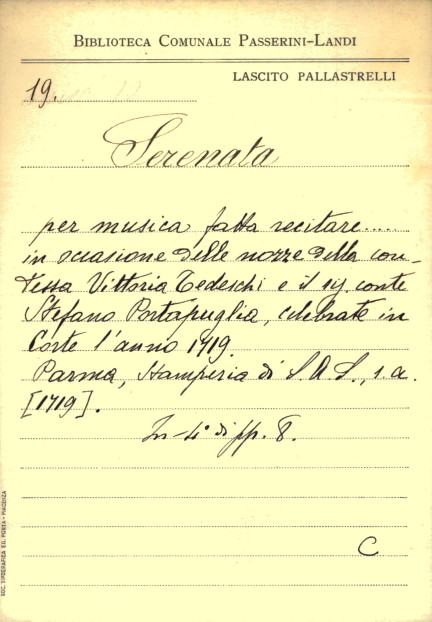 BIBLIOTECA COMUNALE PASSERINI-LANDI
LASCITO PALLASTRELLI
19.
Serenata
per musica fatta recitare.....
in occasione delle nozze della con-
tessa Vittoria Tedeschi e il sig. conte
Stefano Portapuglia, celebrate in
Corte l'anno 1719.
Parma, Stamperia di S. A. S., s. a.
[1719].
In-4° di pp. 8.
C
SOC. TIPOGRAFICA ED. PORTA - PIACENZA